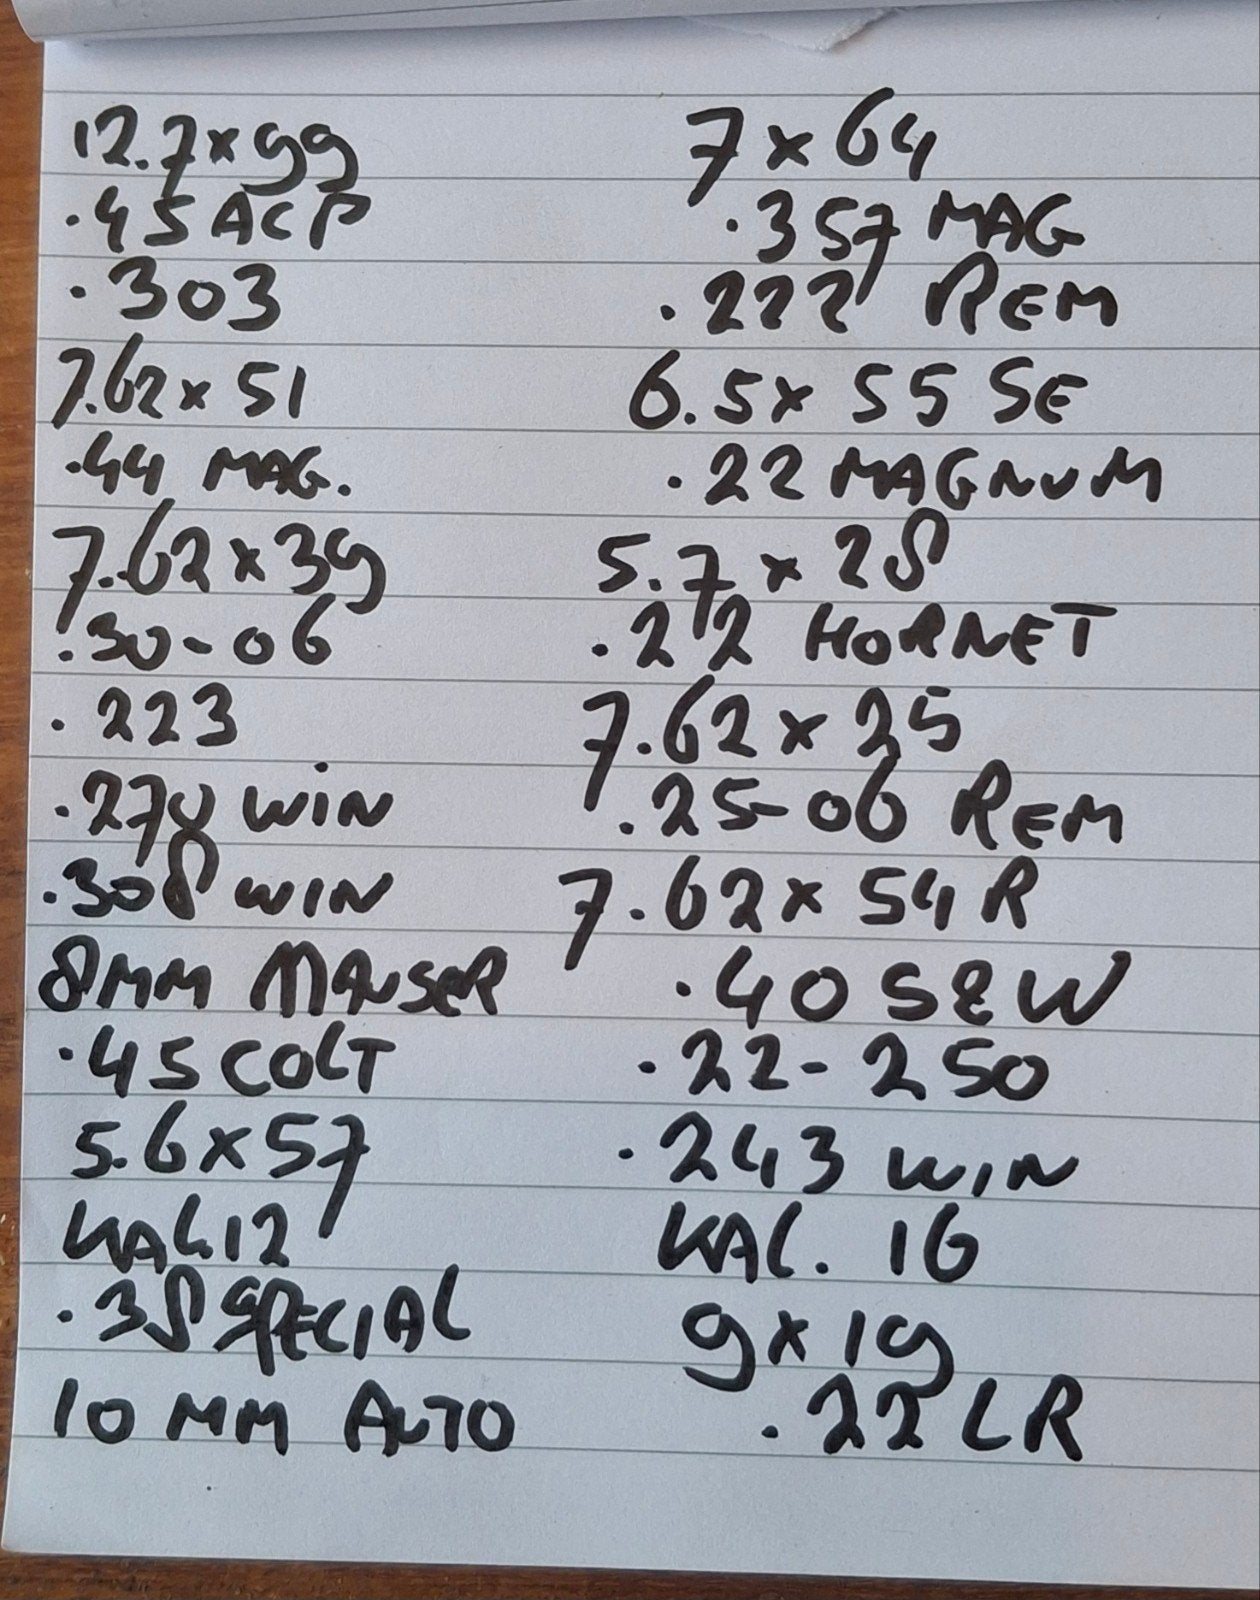 12.7x99
.45 ACP
.303
7.62x51
.44 MAG.
7.62x39
.30-06
.223
.270 WiN
.308 WIN
8MM MAUSER
.45 COLT
5.6x57
KAL.12
.38 SPECIAL
10 MM AUTO
7x64
.357 MAG
.222 REM
6.5x55 SE
.22 MAGNUM
5.7x28
.22 HORNET
7.62x25
.25-06 REM
7.62x54R
.40 S&W
.22-250
.243 WIN
KAL. 16
9x19
.22LR